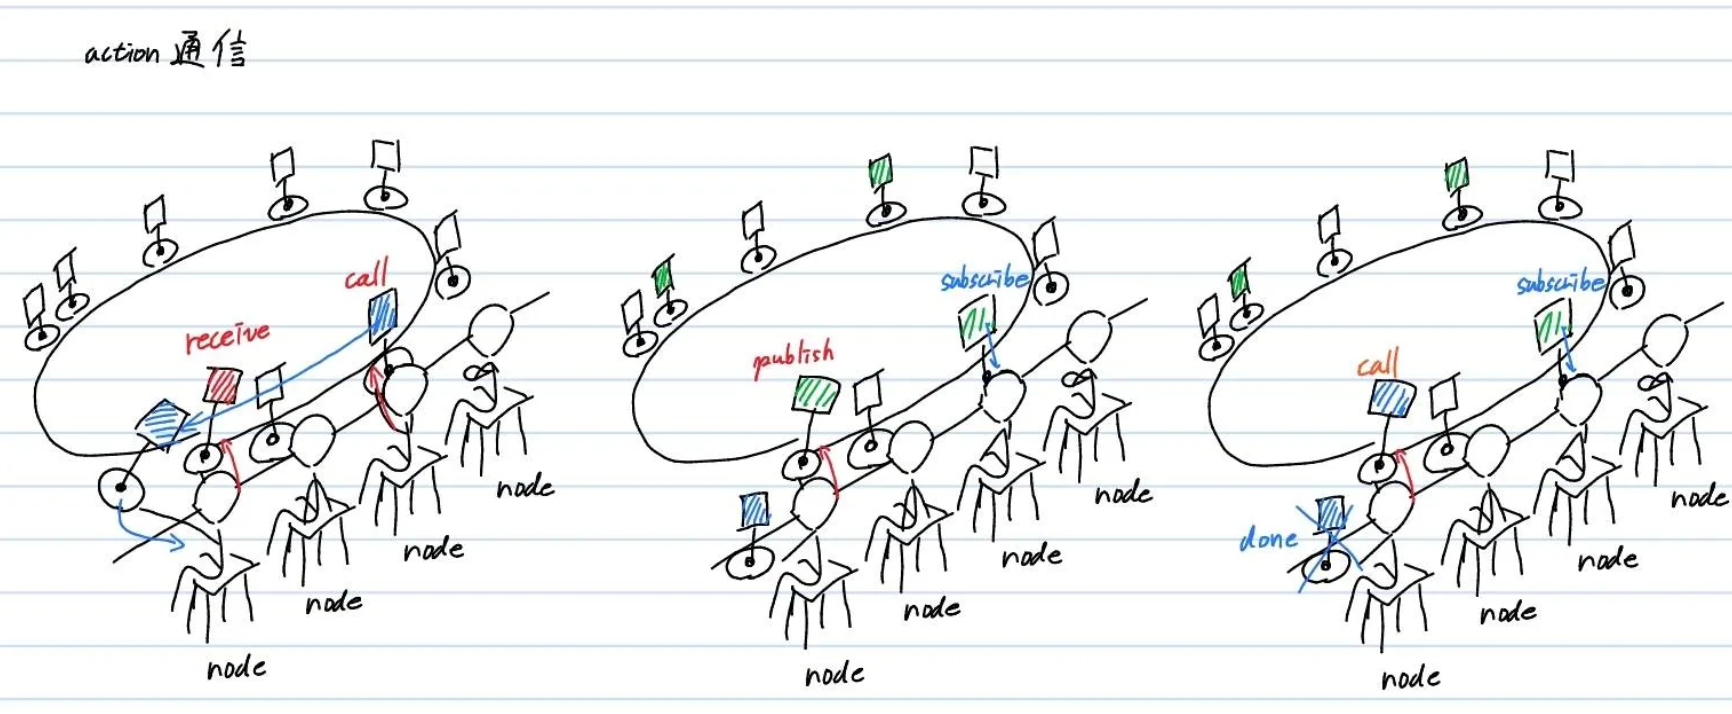 action 通信
call
receive
node
node
node
node
subscribe
publish
node
node
node
node
subscribe
call
done
node
node
node
node